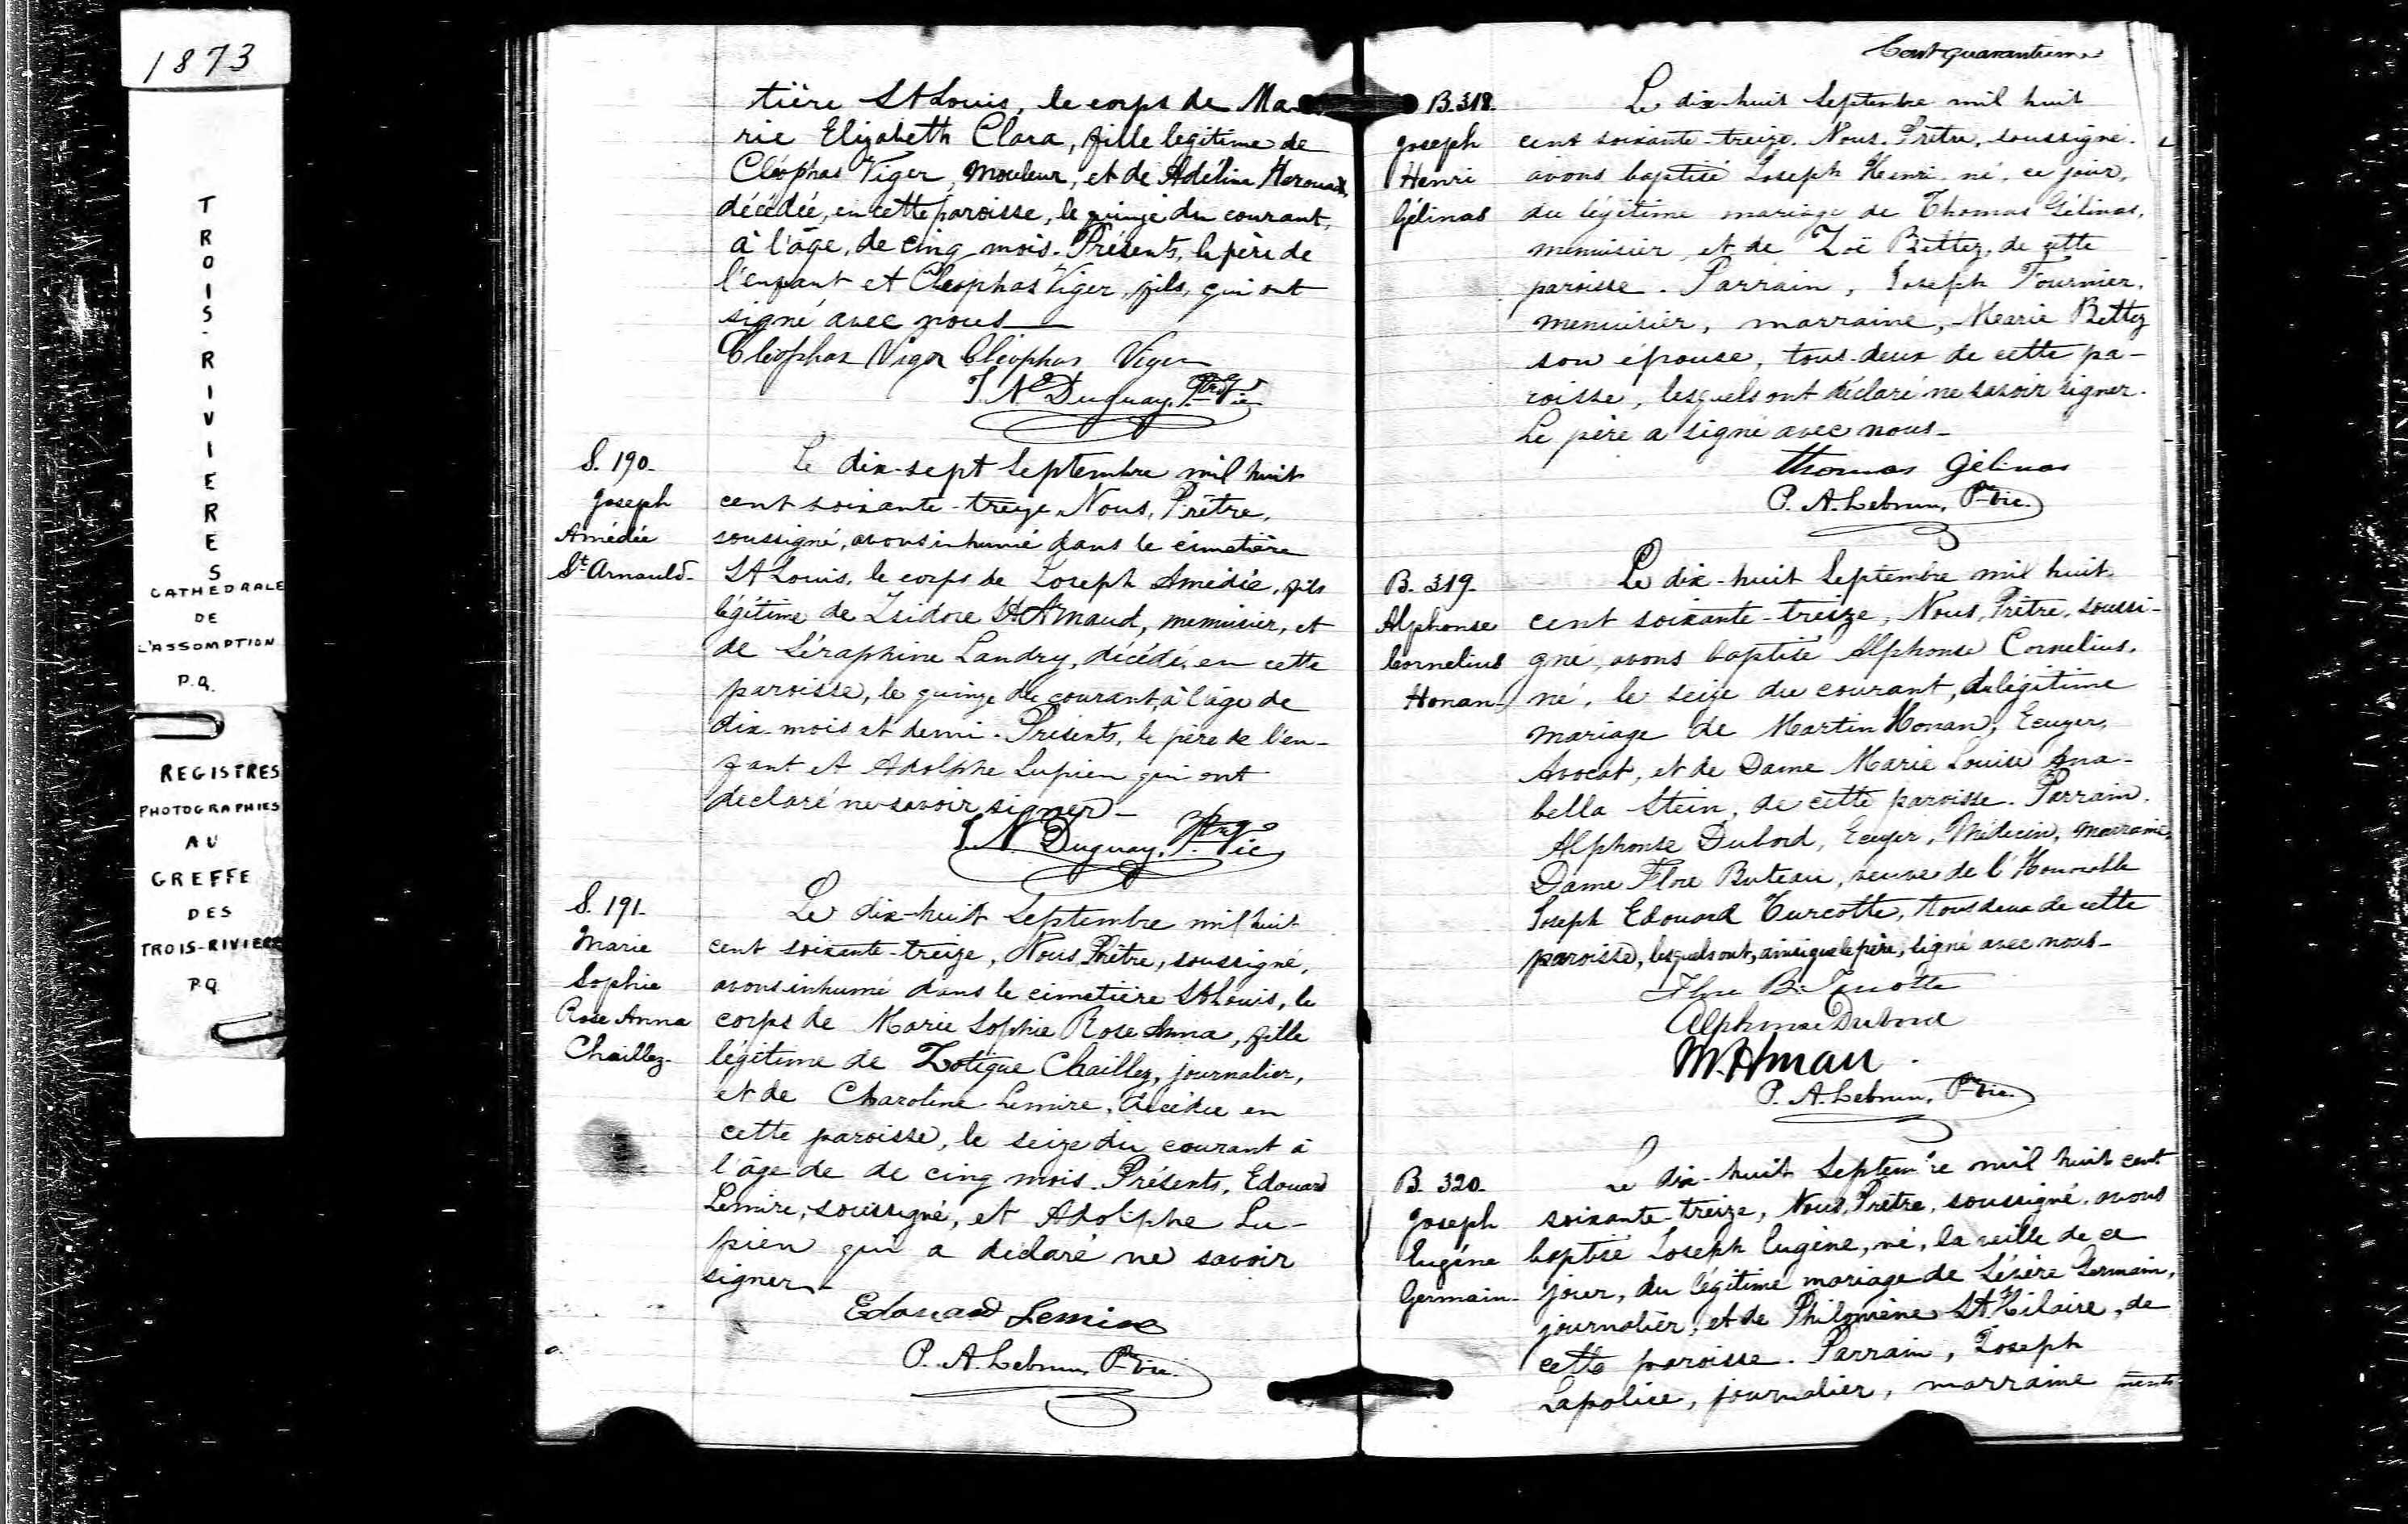 1873
TROIS-RIVIERES
CATHEDRALE
DE
L'ASSOMPTION
P.Q.
REGISTRES
PHOTOGRAPHIES
AU
GREFFE
DES
TROIS-RIVIERES
P.Q.
tière St Louis, le corps de Ma
rie Elizabeth Clara, fille legitime de
Cléophas Viger, mouleur, et de Adélina
décédée, en cette paroisse, le quinze du courant,
à l'âge, de cinq mois. Présents, le père de
l'enfant et Cléophas Viger, fils, qui ont
signé avec nous
Cléophas Viger Cléophas Viger
J. N. Duguay, Ptre Vic
S. 190.
Joseph
Amédée
St Arnauld.
Le dix-sept Septembre mil huit
cent soixante-treize, Nous, Prêtre,
soussigné, avons inhumé dans le cimetière
St Louis, le corps de Joseph Amédée, fils
légitime de Isidore St Arnaud, menuisier, et
de Séraphine Landry, décédé, en cette
paroisse, le quinze du courant, à l'âge de
dix-mois et demi. Présents, le père de l'en-
fant et Adolphe Lupien qui ont
declaré ne savoir signer-
J. N. Duguay, Ptre Vic
S. 191.
Marie
Sophie
Rose Anna
Chaillez.
Le dix-huit Septembre mil huit
cent soixante-treize, Nous Prêtre, soussigné,
avons inhumé dans le cimetière St Louis, le
corps de Marie Sophie Rose Anna, fille
légitime de Zotique Chaillez, journalier,
et de Charoline Lemire, décédée en
cette paroisse, le seize du courant à
l'âge de de cinq mois. Présents, Edouard
Lemire, soussigné, et Adolphe Lu-
pien qui a déclaré ne savoir
signer-
Edouard Lemire
P. A. Lebrun, Ptre Vic.
Cent quarantième
B. 318.
Joseph
Henri
Gélinas
Le dix-huit Septembre mil huit
cent soixante-treize. Nous. Prêtre, soussigné.
avons baptisé Joseph Henri, né, ce jour,
du légitime mariage de Thomas Gélinas,
menuisier, et de Zoë Bettez, de cette
paroisse. Parrain, Joseph Fournier,
menuisier, marraine, Marie Bettez
son épouse, tous-deux de cette pa-
roisse, lesquels ont déclaré ne savoir signer.
Le père a signé avec nous-
Thomas Gélinas
P. A. Lebrun, Ptre Vic.
B. 319.
Alphonse
Cornelius
Honan-
Le dix-huit Septembre mil huit
cent soixante-treize, Nous, Prêtre, soussi-
gné, avons baptisé Alphonse Cornelius,
né, le seize du courant, du légitime
mariage de Martin Honan, Ecuyer,
Avocat, et de Dame Marie Louise Ana-
bella Stein, de cette paroisse. Parrain,
Alphonse Dubord, Ecuyer, Médecin, marraine,
Dame Flore Buteau, veuve de l'Honorable
Joseph Edouard Turcotte, tous deux de cette
paroisse, lesquels ont, ainsi que le père, signé avec nous-
Flore B. Turcotte
Alphonse Dubord
M. Honan.
P. A. Lebrun, Ptre Vic.
B. 320.
Joseph
Eugéne
Germain-
Le dix-huit Septembre mil huit cent
soixante-treize, Nous, Prêtre, soussigné, avons
baptisé Joseph Eugène, né, la veille de ce
jour, du légitime mariage de Sévère Germain,
journalier, et de Philomène St Hilaire, de
cette paroisse. Parrain, Joseph
Lapolice, journalier, marraine